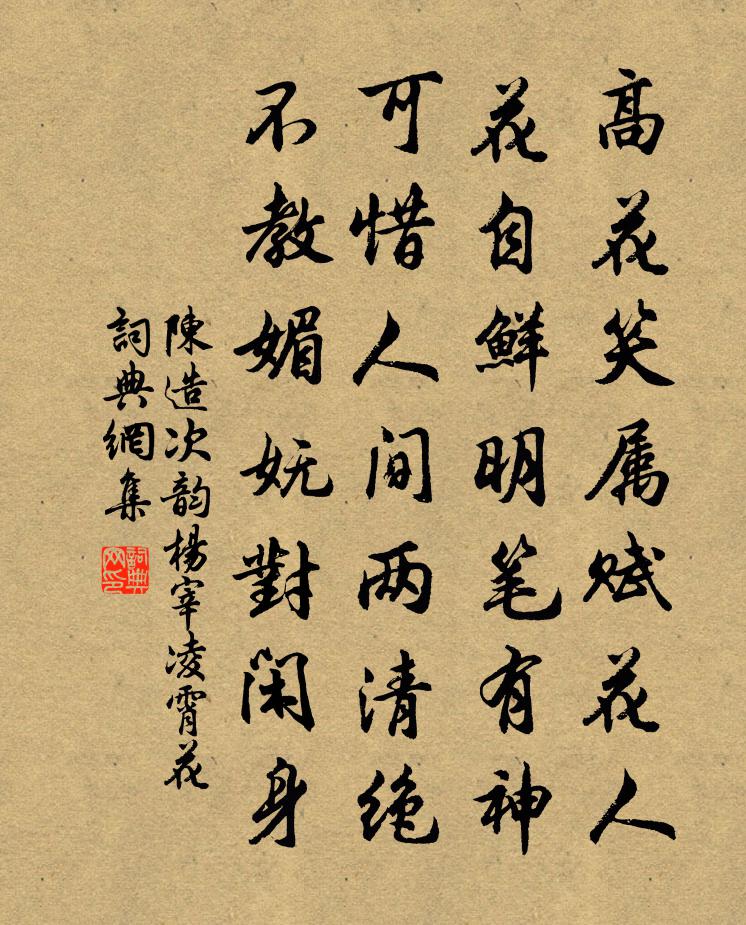 高花笑属赋花人
花自鮮明笔有神
可惜人间两清绝
不教媚妩對闲身
陳造次韵楊宰凌霄花
詞典網集
詞典网印